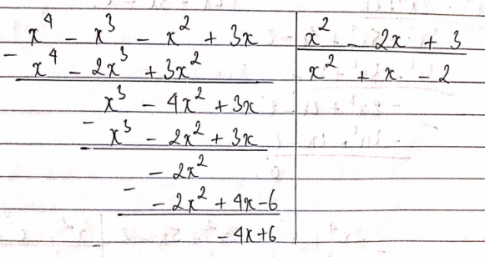 x⁴ - x³ - x² + 3x | x² - 2x + 3
- x⁴ - 2x³ + 3x² | x² + x - 2
x³ - 4x² + 3x
- x³ - 2x² + 3x
- 2x²
- - 2x² + 4x - 6
- 4x + 6